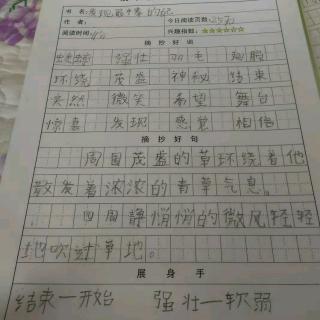 书 名: 发现最中幸的自己
作者: 今日阅读页数: 25页
阅读时间: 兴趣指数: ☆☆☆☆☆☆
摘 抄 好 词
蛐蛐 强壮 羽毛 胸膛
环绕 茂盛 神秘 结束
突然 微笑 希望 舞台
惊喜 发现 感觉 相信
摘 抄 好 句
周围茂盛的草环绕着他
散发着浓浓的青草气息。
四周静悄悄的微风轻轻
地吹过草地。
展 身 手
结束一开始 强壮一软弱